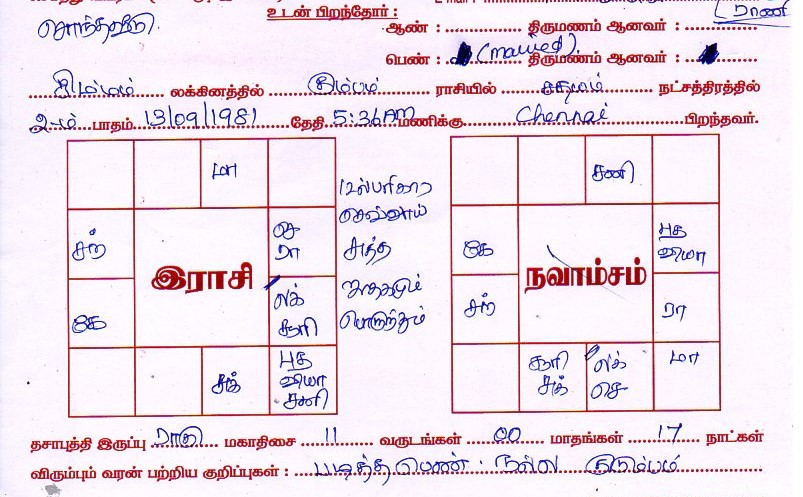 சொந்தவீடு.
உடன் பிறந்தோர் :
ராணி
ஆண் : திருமணம் ஆனவர் :
பெண் : (married) திருமணம் ஆனவர் :
சிம்மம் லக்கினத்தில் கும்பம் ராசியில் சதயம் நட்சத்திரத்தில்
2-ம் பாதம் 13/09/1981 தேதி 5:36 AM மணிக்கு Chennai பிறந்தவர்.
மா
சந்
செ
ரா
கே
லக்
சூரி
சுக்
புத
வியா
சனி
இராசி
பரிகார
செவ்வாய்
சுத்த
ஜாதகமும்
பொருந்தும்
சனி
கே
புத
வியா
சந்
ரா
சூரி
சுக்
லக்
செ
மா
நவாம்சம்
தசாபுத்தி இருப்பு ராகு மகாதிசை 11 வருடங்கள் 00 மாதங்கள் 17 நாட்கள்
விரும்பும் வரன் பற்றிய குறிப்புகள் : படித்த பெண். நல்ல குடும்பம்